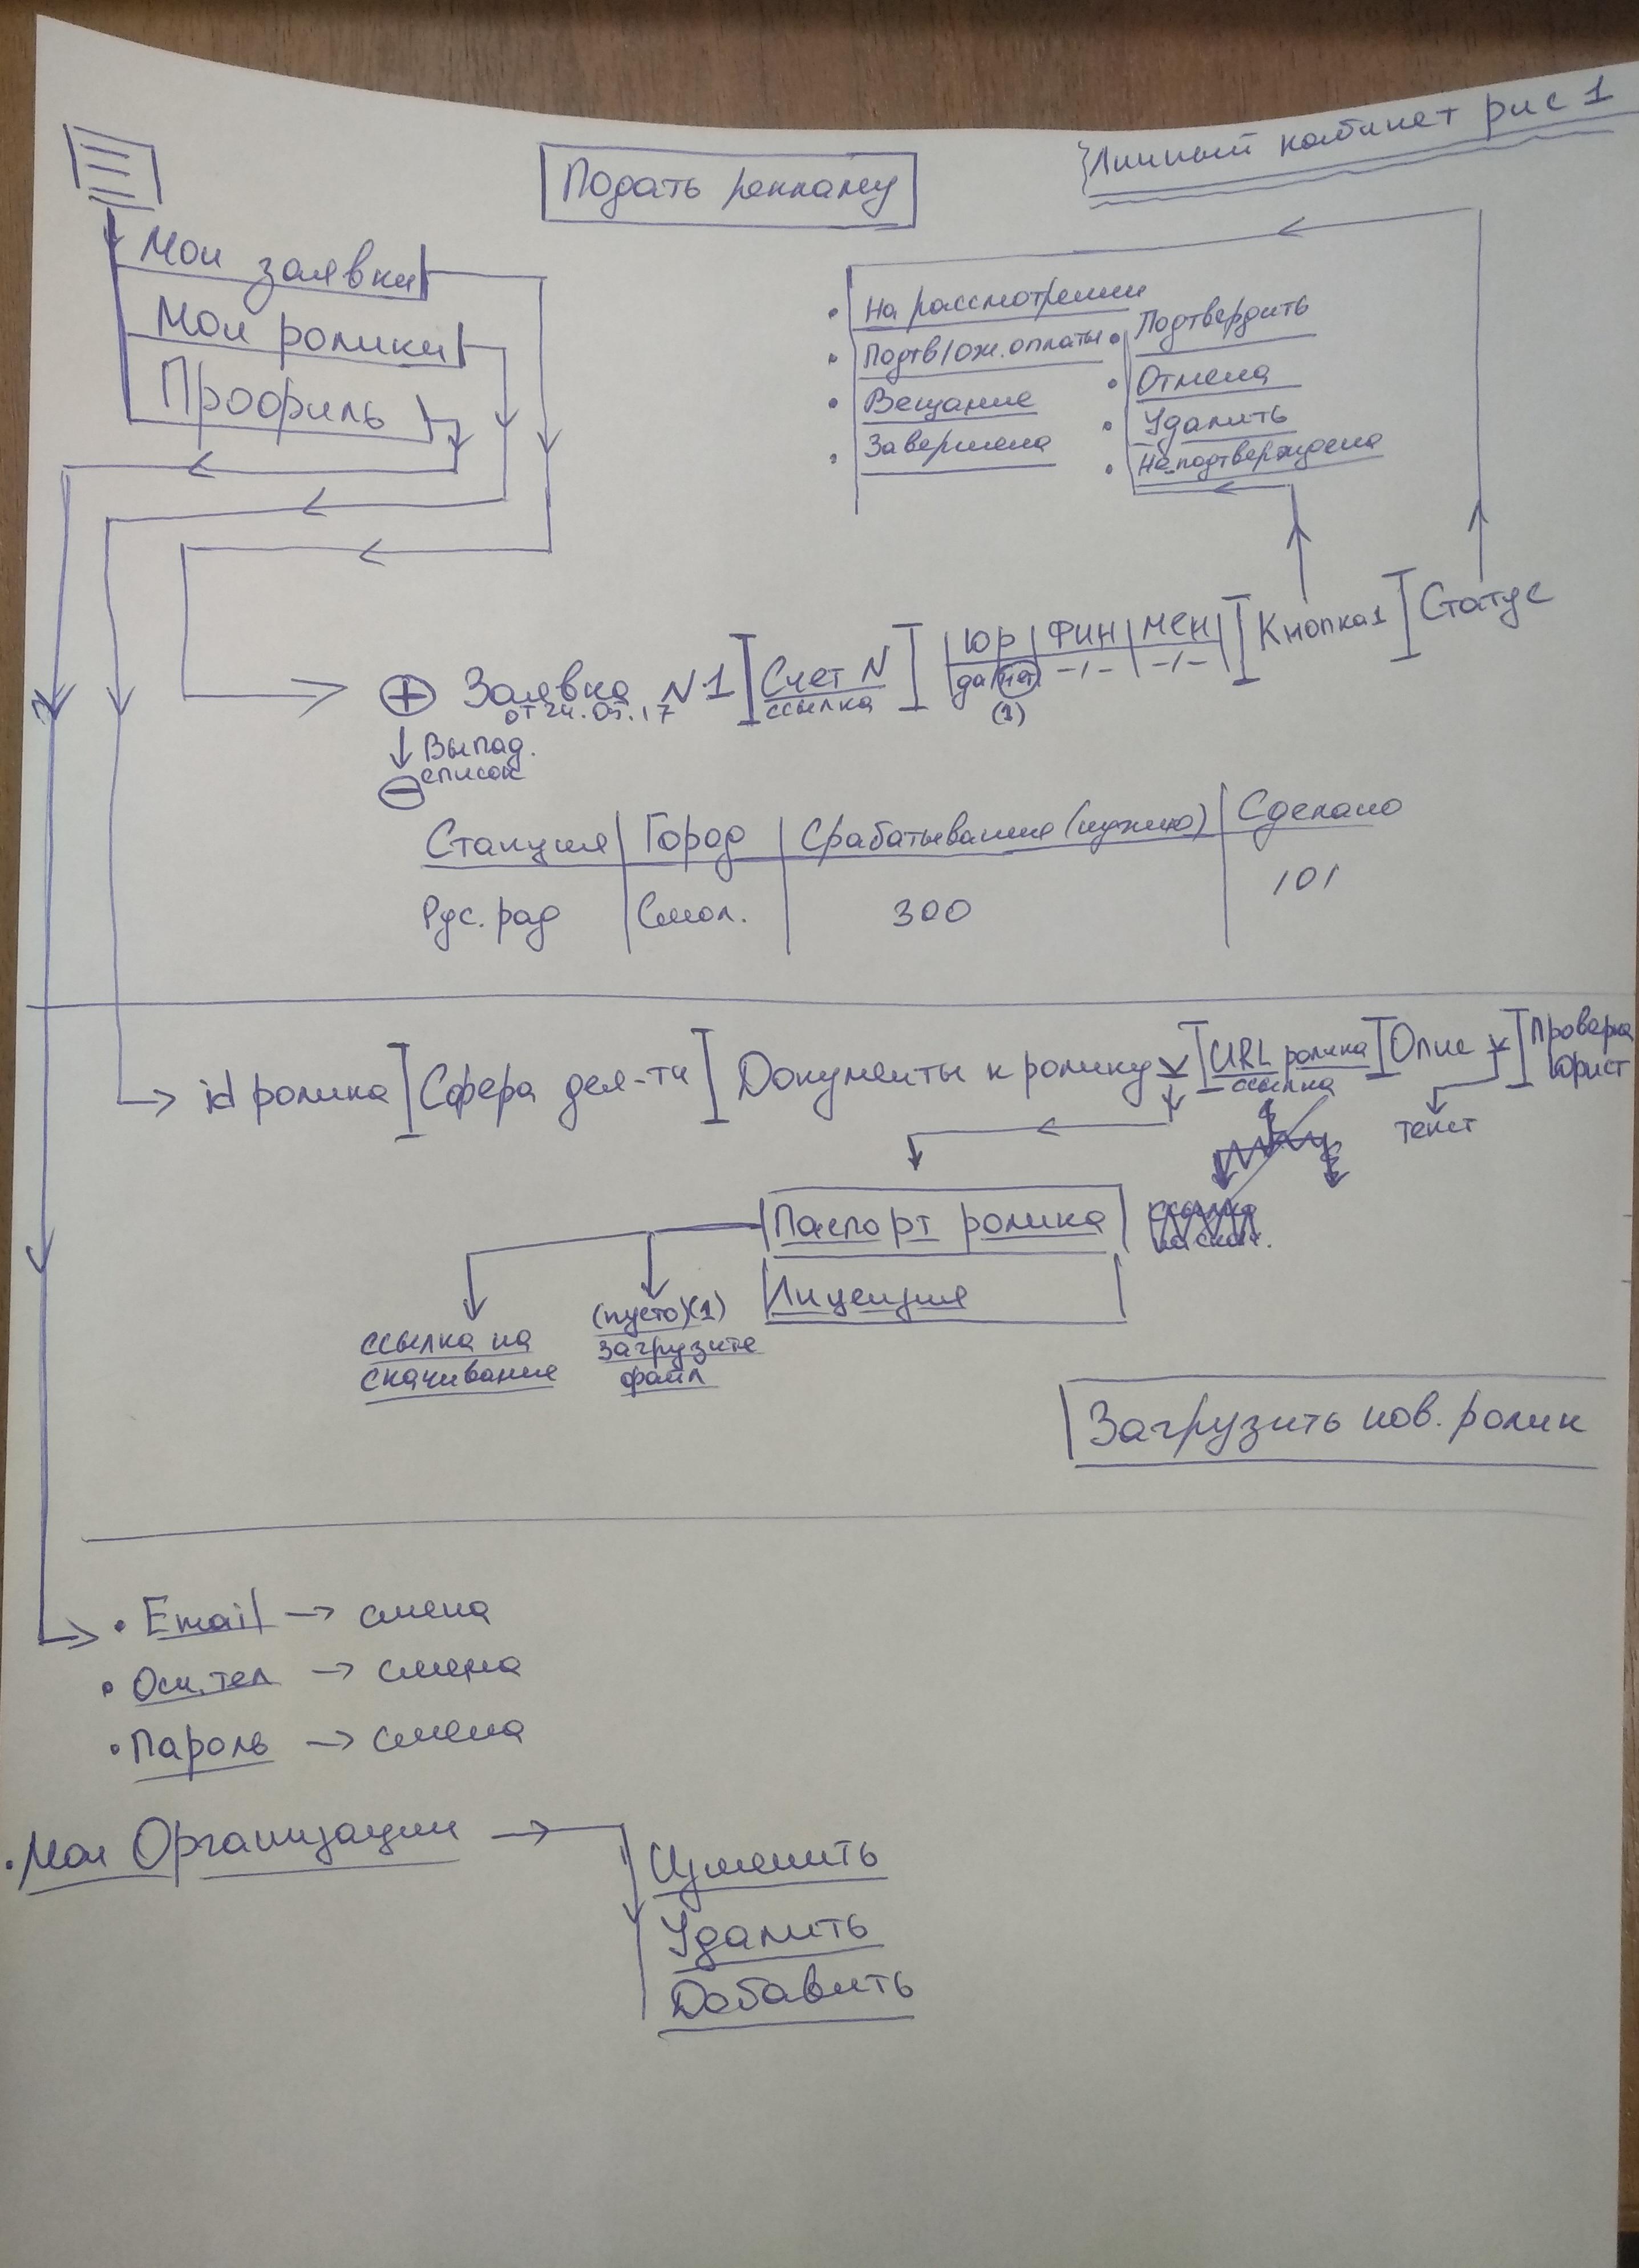 Личный кабинет рис 1
Подать рекламу
Мои заявки
Мои ролики
Профиль
На рассмотрении
Подтв/ож. оплаты
Вещание
Завершена
Подтвердить
Отмена
Удалить
Не подтверждена
Заявка N1 Счет N Юр ФИН МЕН Кнопка1 Статус
от 24.05.17 ссылка да/нет -/- -/-
(1)
Выпад.
список
Станция Город Срабатывание (нужно) Сделано
Рус. рад Смол. 300 101
id ролика Сфера деят-ти Документы к ролику URL ролика Опис Проверка
ссылка Юрист
текст
Паспорт ролика
Лицензия
ссылка на
скачивание
(пусто)(1)
загрузите
файл
Загрузить нов. ролик
Email → смена
Осн. тел → смена
Пароль → смена
Мои Организации →
Изменить
Удалить
Добавить